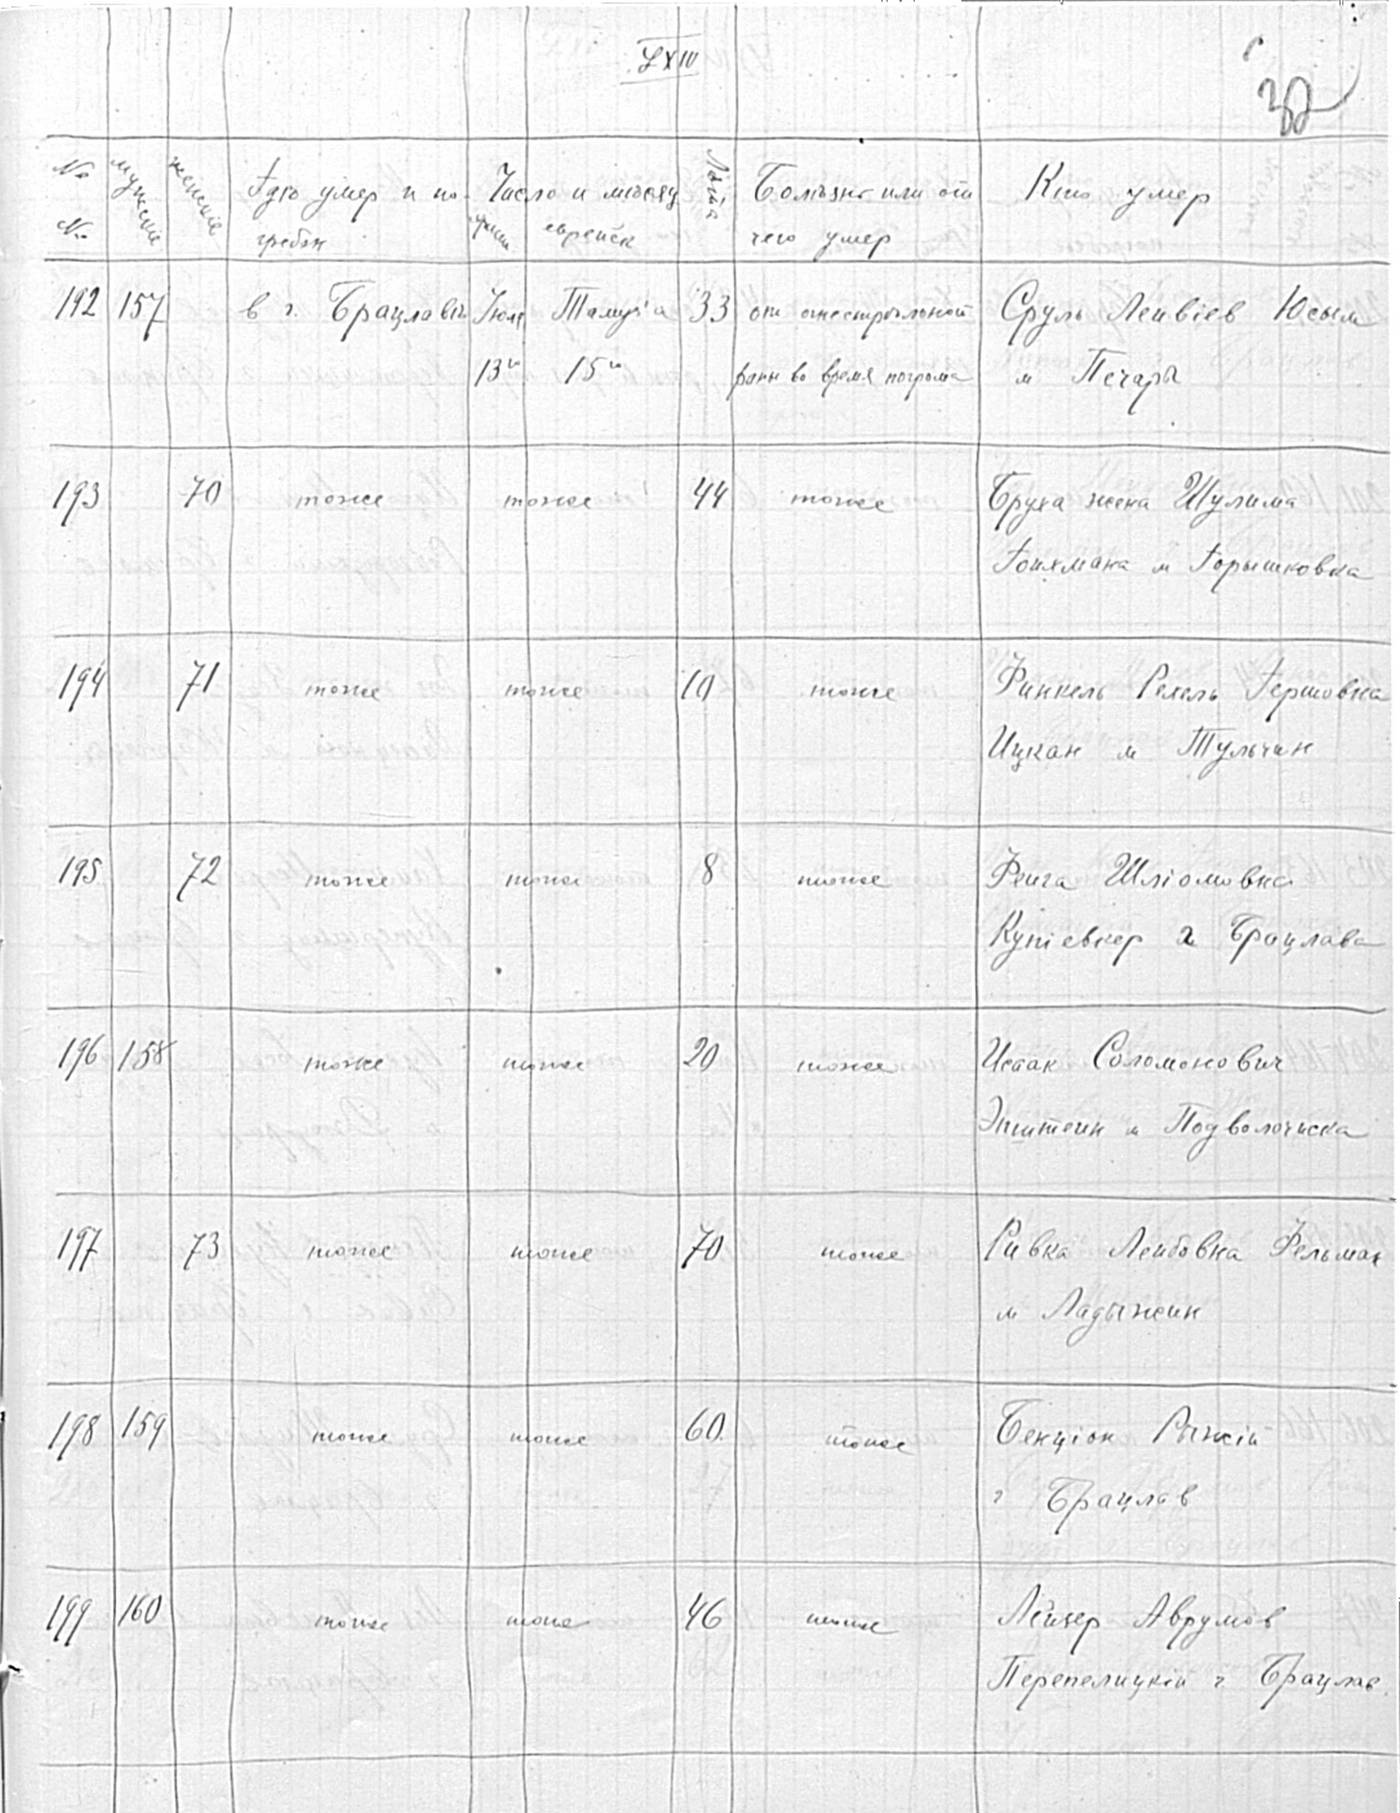 LXIV
32
№ №
мужские
женские
Где умер и по-
гребен
Число и месяц
еврейск
Лѣта
Болѣзнь или от
чего умер
Кто умер
192 157 в г. Брацлавѣ Июля Тамуза 33 от огнестрѣльной Сруль Лейвіев Юсым
13го 15го раны во время погрома м Печара
193 70 тоже тоже 44 тоже Бруха жена Шулима
Гойхмана м Горышковка
194 71 тоже тоже 10 тоже Финкель Рехель Гершовна
Ицкан м Тульчин
195 72 тоже тоже 8 тоже Фейга Шліомовна
Купіевкер г Брацлава
196 158 тоже тоже 20 тоже Исаак Соломонович
Эпштейн м Подволочиска
197 73 тоже тоже 70 тоже Ривка Лейбовна Фельман
м Ладыжин
198 159 тоже тоже 60 тоже Бенціон Рыжій
г Брацлав
199 160 тоже тоже 46 тоже Лейзер Аврумов
Перепелицкій г Брацлав.